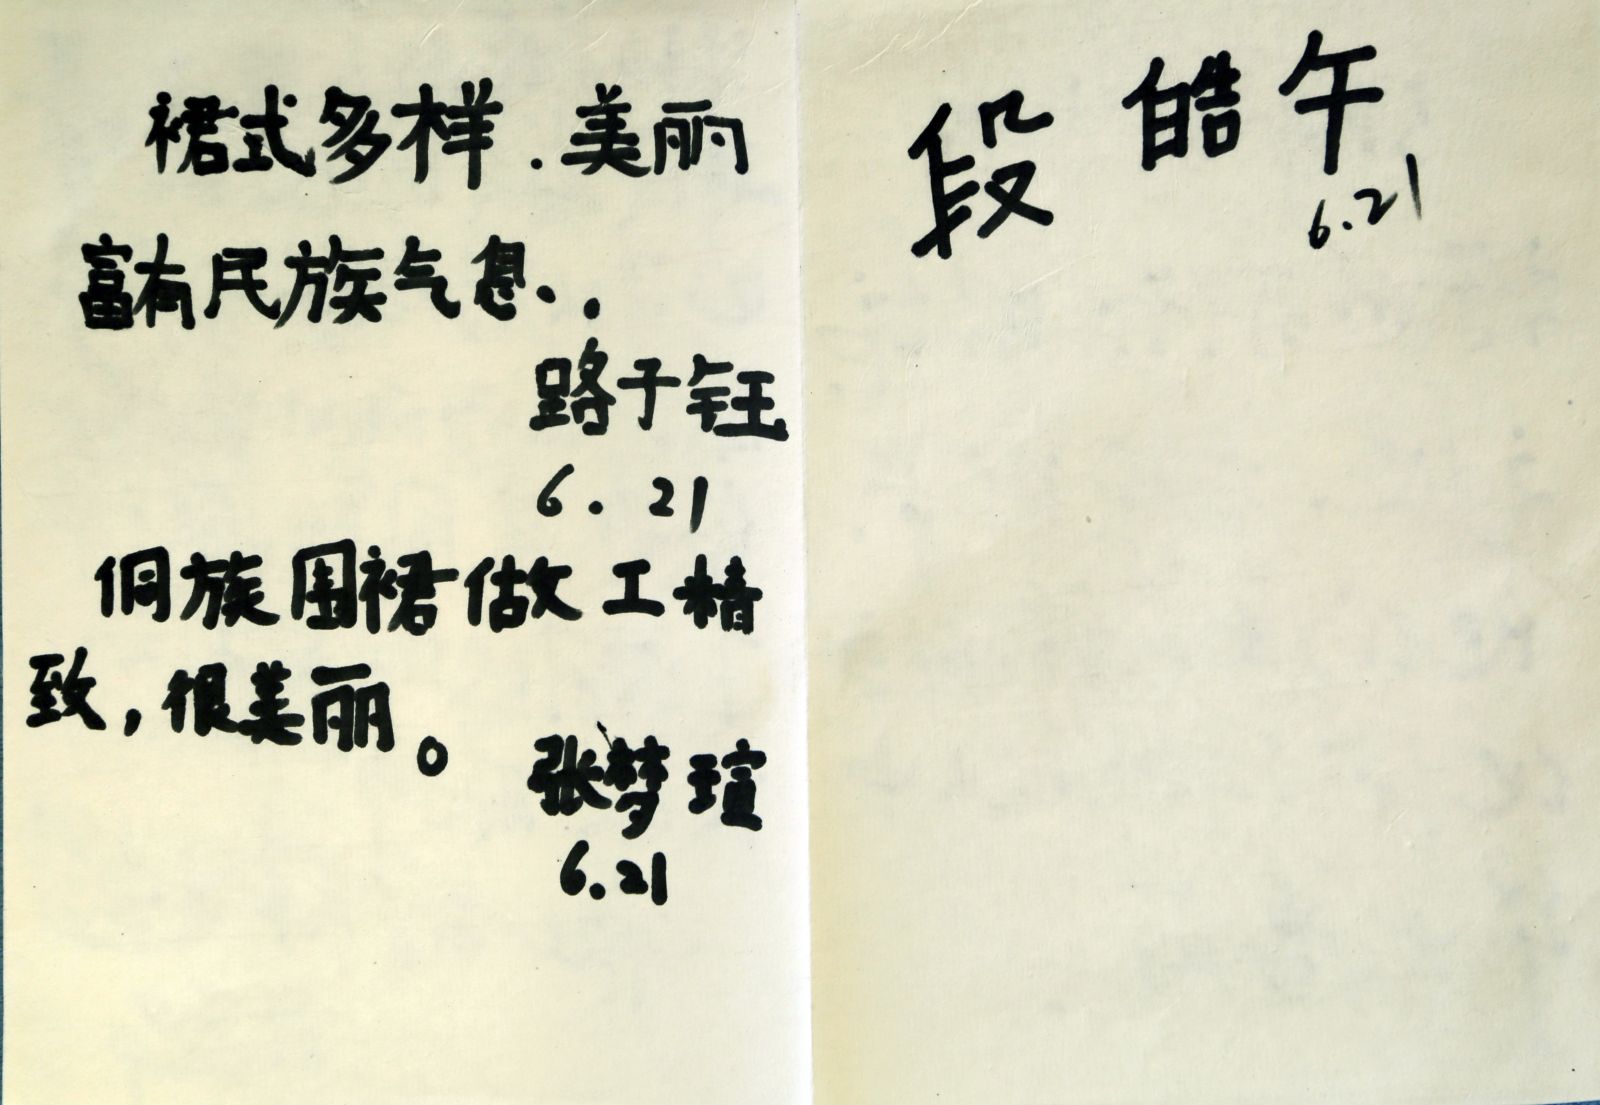 裙式多样.美丽
富有民族气息..
路子钰
6.21
侗族围裙做工精
致,很美丽。
张梦瑄
6.21
段皓午
6.21